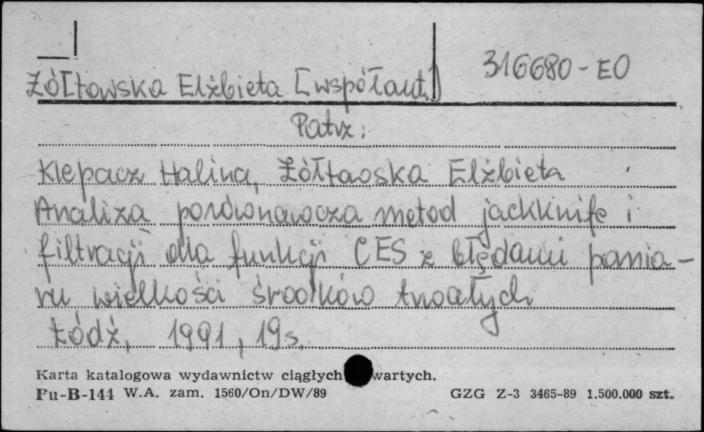 316680-EO
Żółtowska Elżbieta [współaut.]
Patrz:
Klepacz Halina, Żółtowska Elżbieta
Analiza porównawcza metod jackknife i
filtracji dla funkcji CES z błędami pomia-
ru wielkości środków trwałych
Łódź, 1991, 19 s.
Karta katalogowa wydawnictw ciągłych wartych.
Pu-B-144 W.A. zam. 1560/On/DW/89 GZG Z-3 3465-89 1.500.000 szt.